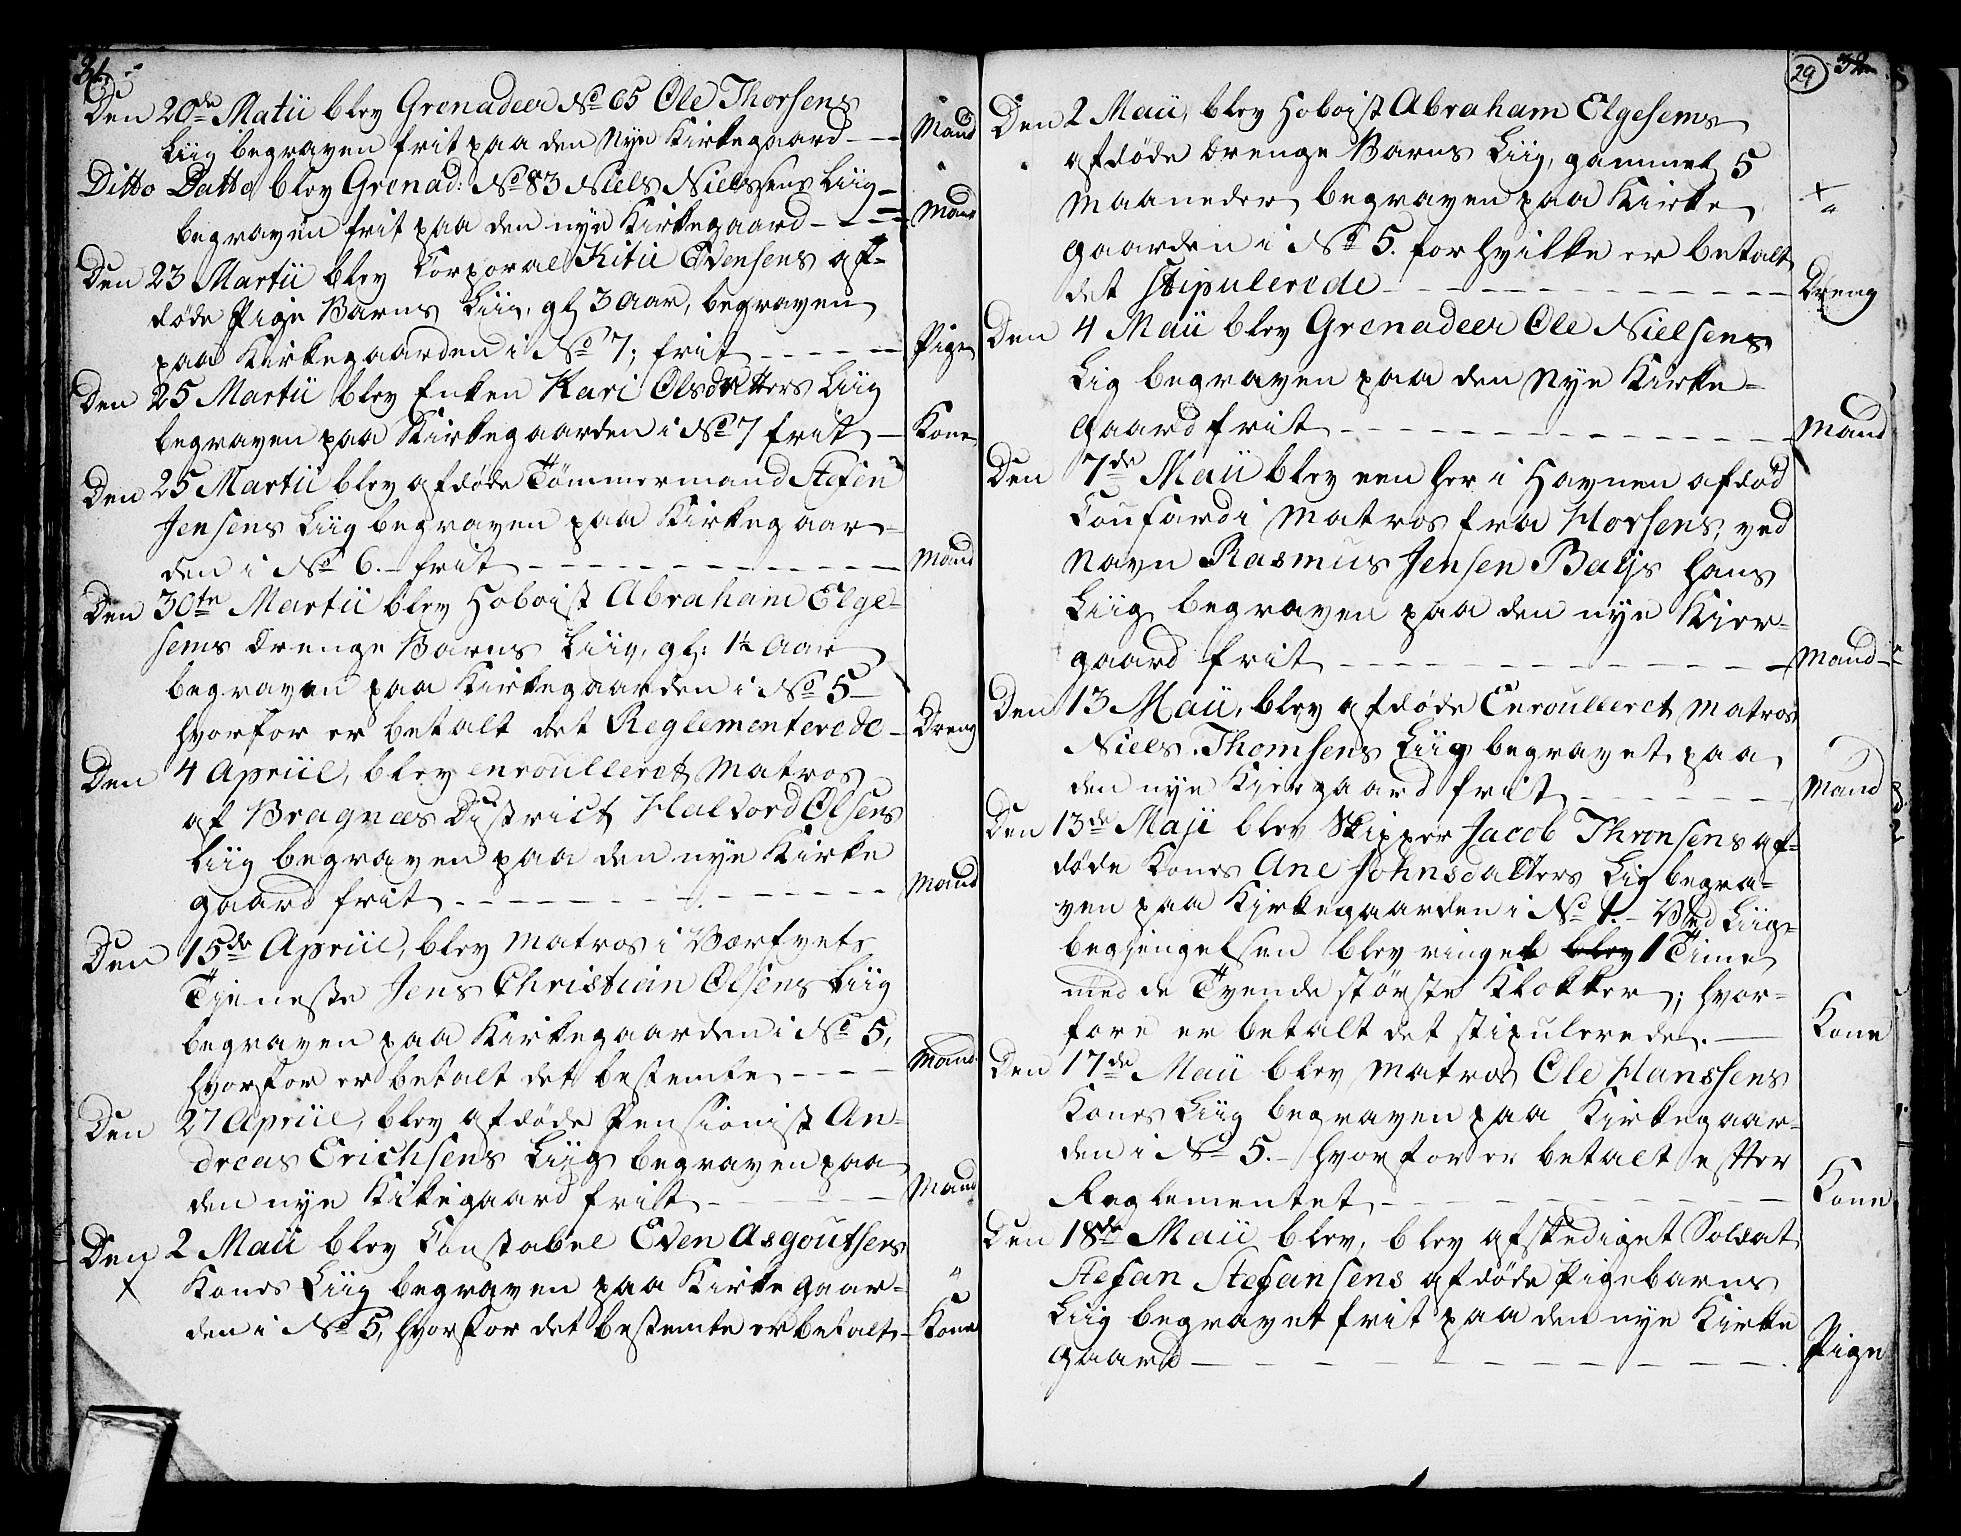 31.
Den 20de Matii blev Grenadeer No 65 Ole Thorsens
Liig begraven frit paa den Nye Kirkegaard - - Mand
Ditto Datto blev Grenad: No 83 Niels Nielssens Liig -
begraven frit paa den nye Kirkegaard - - - Mand
Den 23 Martii blev Corporal Kitil Evensens af-
døde Pige Barns Liig, gl 3 Aar, begraven
paa Kirkegaarden i No 7; frit - - - - - Pige
Den 25 Martii blev Enken Kari Olsdatters Liig
begraven paa Kirkegaarden i No 7 frit - Kone
Den 25 Martii blev afdøde Tömmermand Stefen
Jensens Liig begraven paa Kirkegaar-
den i No 6. - frit - - - - - - - - - Mand
Den 30te Martii blev Hoboist Abraham Elge-
sems Drenge Barns Liig, gl: 1½ Aar
begraven paa Kirkegaarden i No 5 -
hvorfor er betalt det Reglementerede - Dreng
Den 4 Apriil, blev enroulleret Matros
af Bragnæs District Halvord Olsens
Liig begraven paa den nye Kirke
gaard frit - - - - - - - - - Mand
Den 15de Apriil, blev Matros i Værfvets
Tjeneste Jens Christian Olsens Liig
begraven paa Kirkegaarden i No 5,
hvorfor er betalt det bestemte - - - - Mand
Den 27 Apriil, blev afdøde Pensionist An-
dreas Erichsens Liig begraven paa
den nye Kikegaard frit - - - Mand
Den 2 Maii blev Constabel Even Asgoutsens
X Kones Liig begraven paa Kirkegaar- "
den i No 5, hvorfor det bestemte er betalt - Kone
29 32
Den 2 Maii, blev Hoboist Abraham Elgesems
afdøde Drenge Barns Liig, gammel 5
Maaneder begraven paa Kirke X "
gaarden i No 5. for hvilke er betalt
det stipulerede - - - - - - - - - Dreng
Den 4 Maii blev Grenadeer Ole Nielsens
Lig begraven paa den Nye Kirke-
gaard frit - - - - - - - - - - Mand
Den 7de Maii blev een her i Havnen afdød
Coufardi Matros fra Horsens, ved
Navn Rasmus Jensen Bays hans
Liig begraven paa den nye Kier-
gaard frit - - - - - - - - - Mand -
Den 13 Maii, blev afdøde Enroulleret Matros
Niels Thomsens Liig begravet paa
den nye Kiergaard frit - - - - - - Mand
Den 13de Maji blev Skipper Jacob Thronsens af-
døde Kones Ane Johnsdatters Lig begra-
ven paa Kirkegaarden i No 1. - Ved Liig-
begiengelsen blev ringet blev 1 Time
med de Tvende største Klokker; hvor-
fore er betalt det stipulerede. - Kone
Den 17de Maii blev Matros Ole Hanssens
Kones Liig begraven paa Kirkegaar-
den i No 5. - hvorfor er betalt efter
Reglementet - - - - - - - - - Kone
Den 18de Maii blev, blev afskediget Soldat
Stefan Stefansens afdøde Pigebarns
Liig begravet frit paa den nye Kirke
gaard - - - - - - - - - - Pige